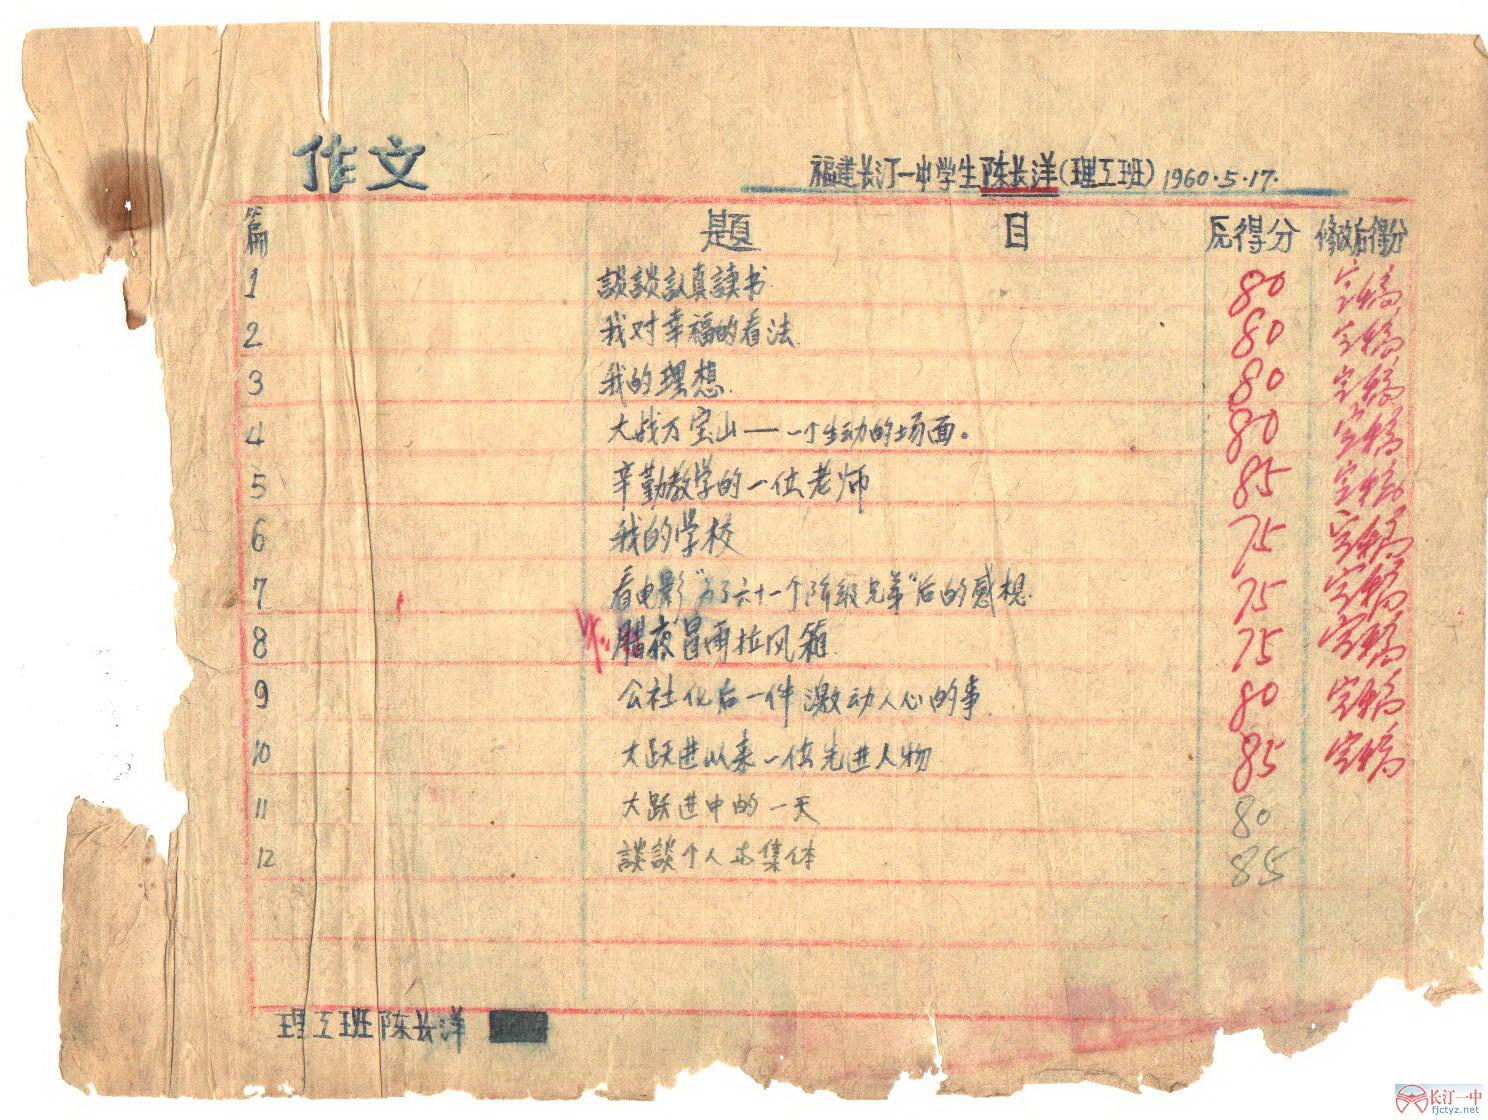 作文
福建长汀一中学生陈长洋(理工班) 1960.5.17.
篇 题 目 原得分 修改后得分
1 談談认真读书. 80 定稿
2 我对幸福的看法. 80 定稿
3 我的理想. 80 定稿
4 大战万宝山——一个生动的场面。 80 定稿
5 辛勤教学的一位老师 85 定稿
6 我的学校 75 定稿
7 看电影"为了六十一个阶级兄弟"后的感想. 75 定稿
8 腊夜冒雨拉风箱. 75 定稿
9 公社化后一件激动人心的事. 80 定稿
10 大跃进以来一位先进人物. 85 定稿
11 大跃进中的一天 80
12 談談个人与集体 85
理工班陈长洋
长汀一中
fjctyz.net